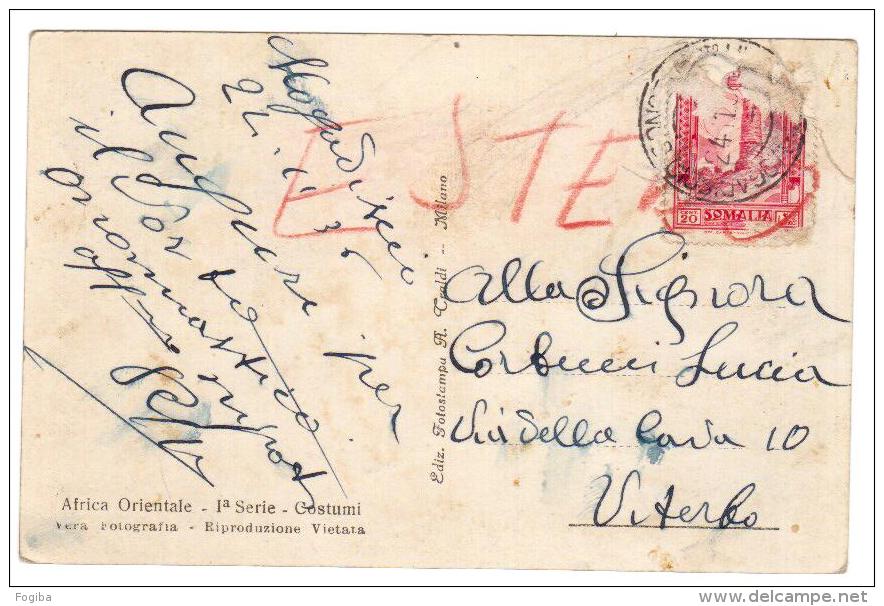 Mogadiscio
24.11.36
Auguri per
il Suo
onomastico
ESTE
20 SOMALIA
Alla Signora
Corbucci Lucia
Via della Cava 10
Viterbo
Ediz. Fotostampa A. Traldi -- Milano
Africa Orientale - Iª Serie - Costumi
Vera Fotografia - Riproduzione Vietata
Fogiba
delcampe.net